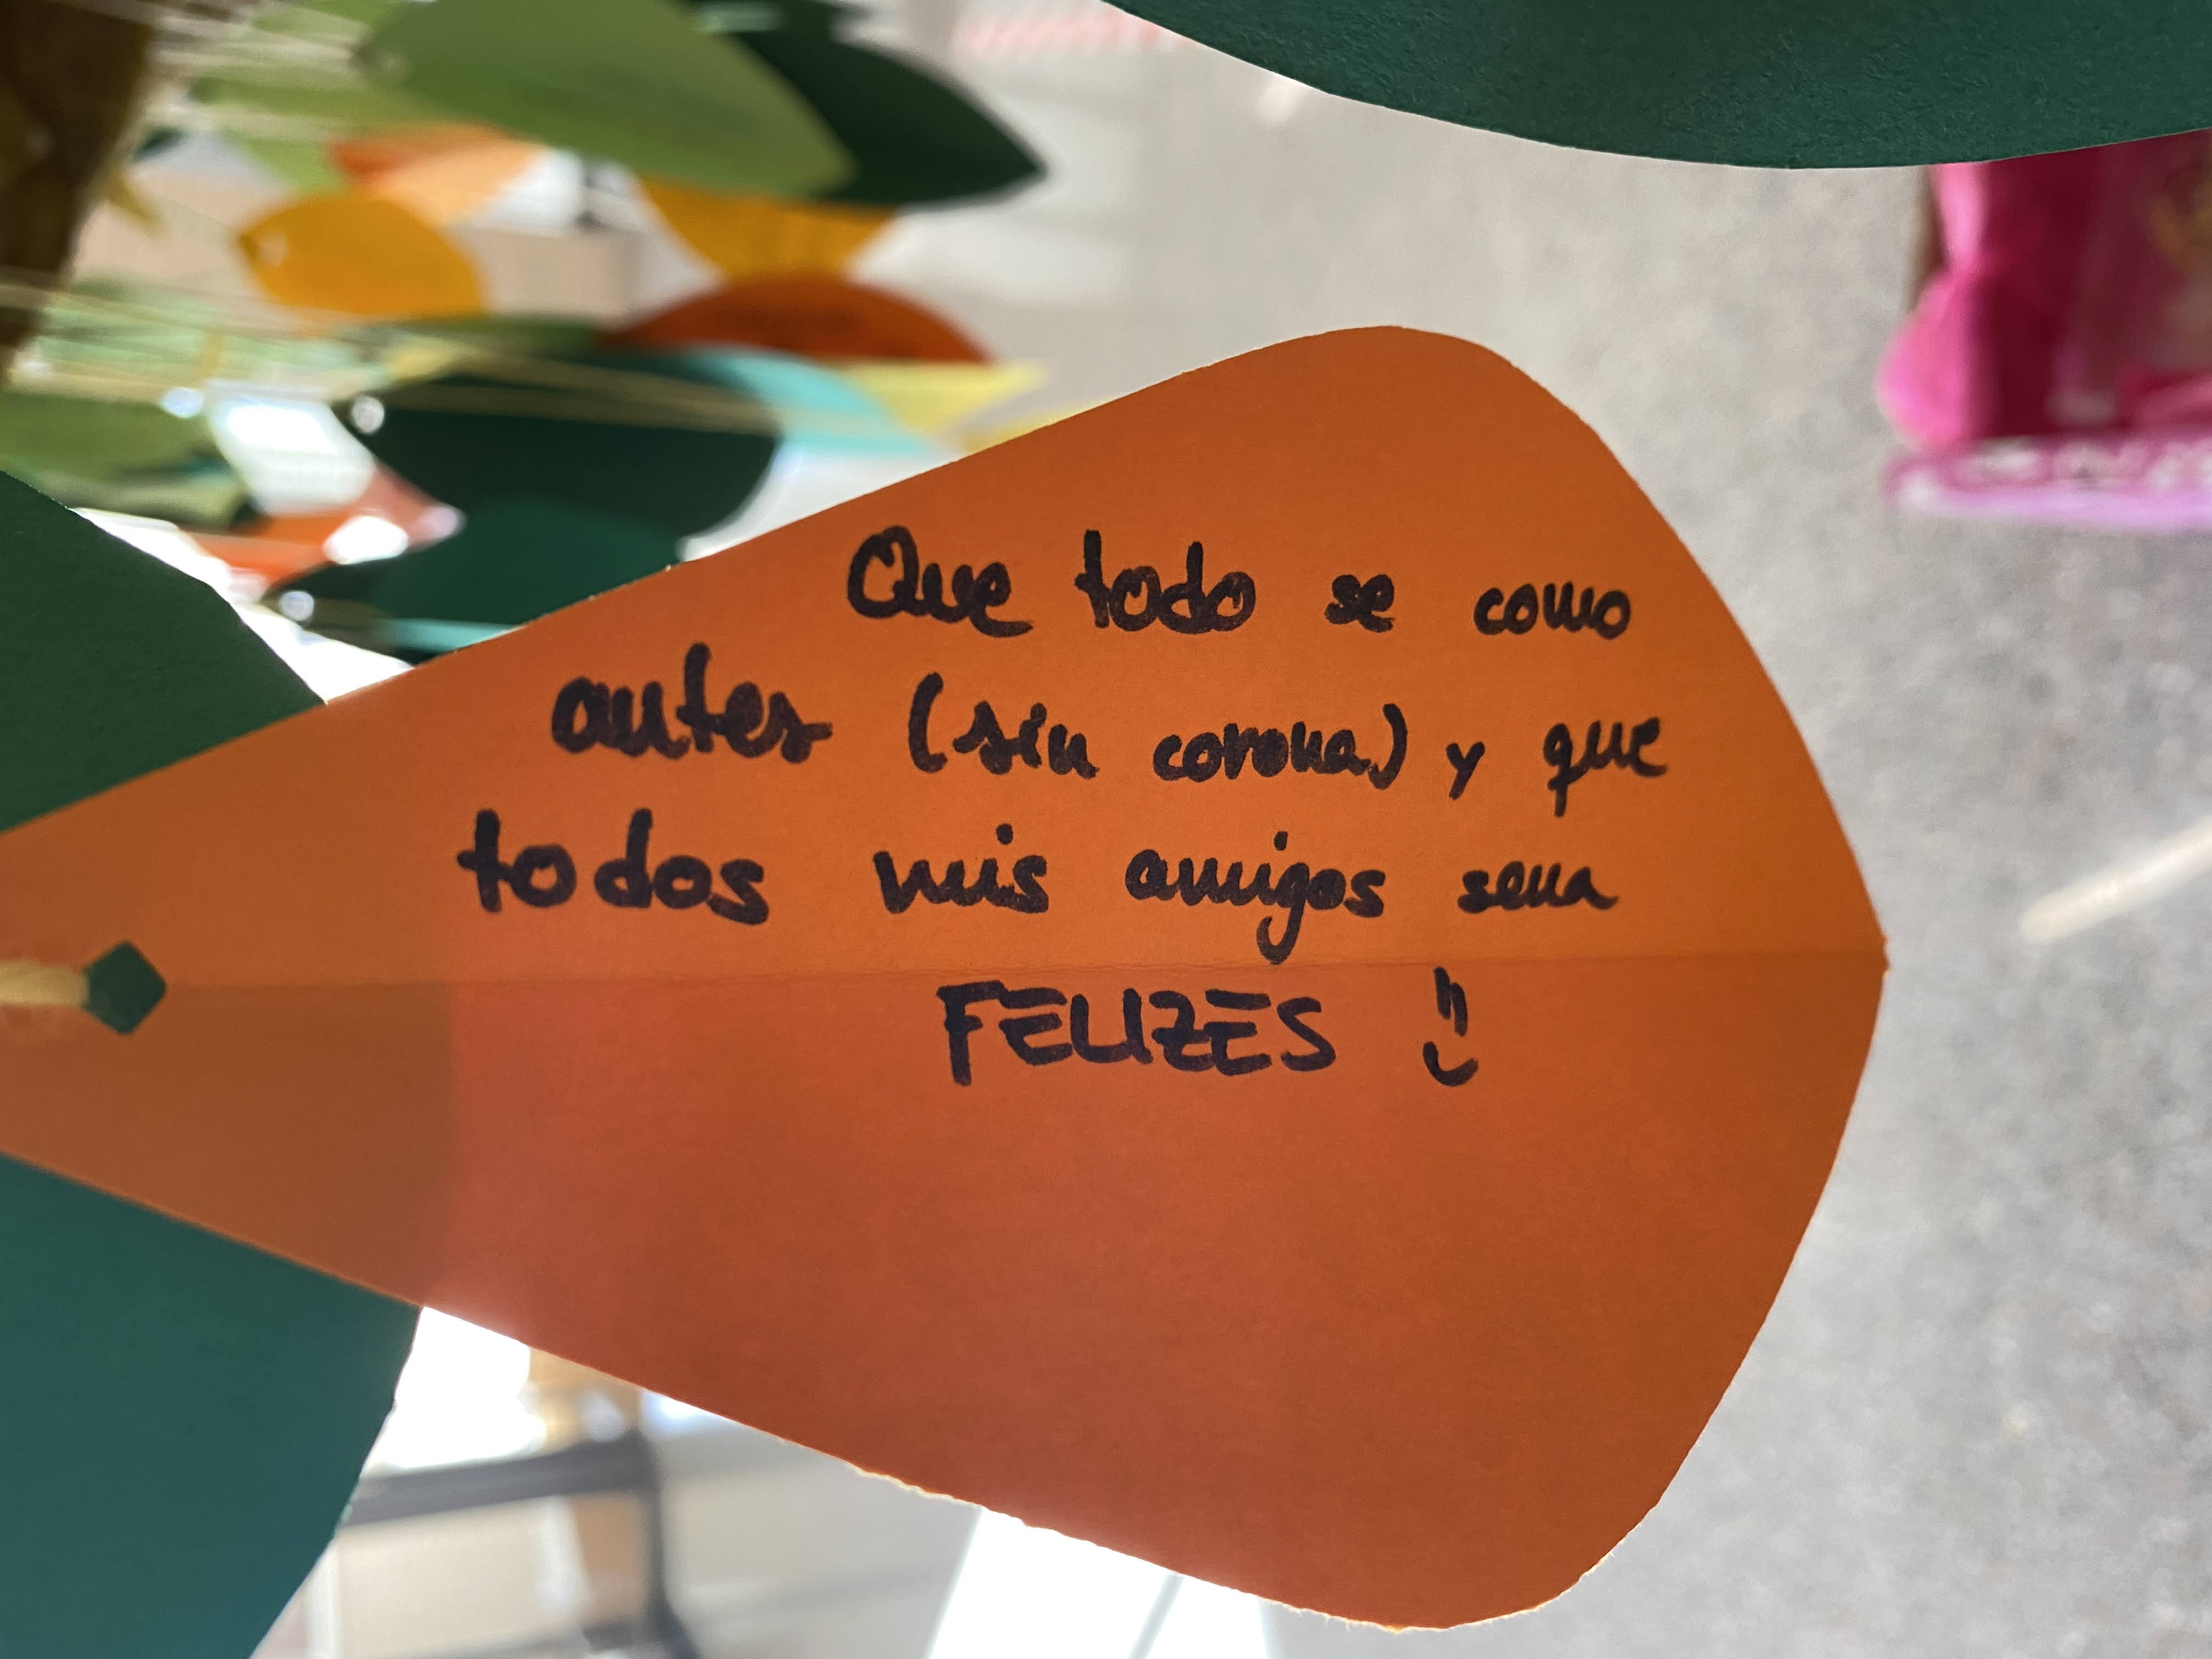 Que todo se como
antes (sin corona) y que
todos mis amigos sena
FELIZES